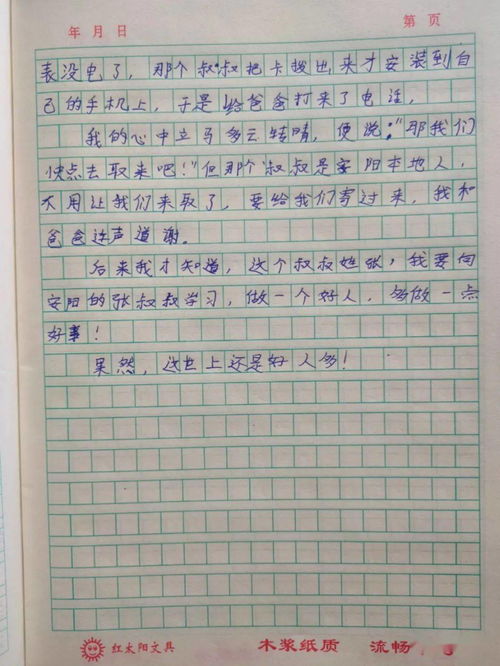 年 月 日 第 页
表没电了，那个叔叔把卡拨出来才安装到自
己的手机上，于是给爸爸打来了电话，
我的心中立马多云转晴，便说："那我们
快点去取来吧！"但那个叔叔是安阳本地人，
不用让我们来取了，要给我们寄过来，我和
爸爸连声道谢。
后来我才知道，这个叔叔姓张，我要向
安阳的张叔叔学习，做一个好人，多做一点
好事！
果然，这世上还是好人多！
红太阳文具 木浆纸质 流畅